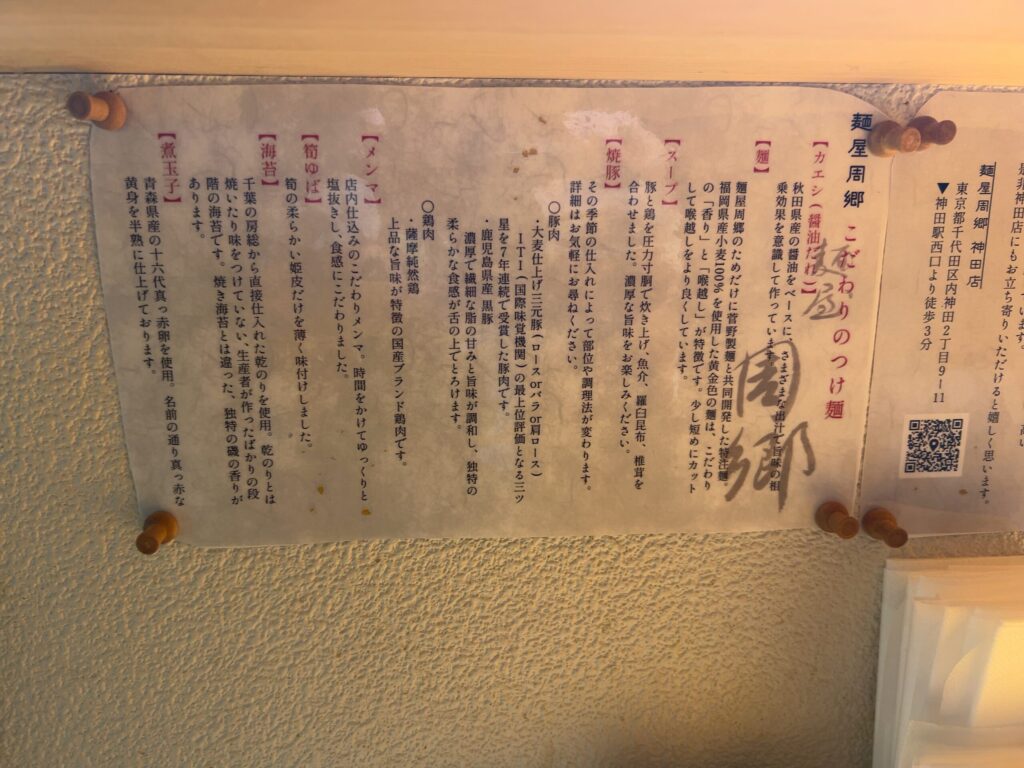 是非神田店にもお立ち寄りいただけると嬉しく思います。
麺屋周郷 神田店
東京都千代田区内神田2丁目9-11
▼神田駅西口より徒歩3分
麺屋周郷 こだわりのつけ麺
麺屋
周郷
【カエシ(醤油だれ)】
秋田県産の醤油をベースに、さまざまな出汁で旨味の相
乗効果を意識して作っています。
【麺】
麺屋周郷のためだけに菅野製麺と共同開発した特注麺。
福岡県産小麦100%を使用した黄金色の麺は、こだわり
の「香り」と「喉越し」が特徴です。少し短めにカット
して喉越しをより良くしています。
【スープ】
豚と鶏を圧力寸胴で炊き上げ、魚介、羅臼昆布、椎茸を
合わせました。濃厚な旨味をお楽しみください。
【焼豚】
その季節の仕入れによって部位や調理法が変わります。
詳細はお気軽にお尋ねください。
〇豚肉
・大麦仕上げ三元豚(ロースorバラor肩ロース)
ITI(国際味覚機関)の最上位評価となる三ツ
星を7年連続で受賞した豚肉です。
・鹿児島県産 黒豚
濃厚で繊細な脂の甘みと旨味が調和し、独特の
柔らかな食感が舌の上でとろけます。
〇鶏肉
・薩摩純然鶏
上品な旨味が特徴の国産ブランド鶏肉です。
【メンマ】
店内仕込みのこだわりメンマ。時間をかけてゆっくりと
塩抜きし、食感にこだわりました。
【筍ゆば】
筍の柔らかい姫皮だけを薄く味付けしました。
【海苔】
千葉の房総から直接仕入れた乾のりを使用。乾のりとは
焼いたり味をつけていない、生産者が作ったばかりの段
階の海苔です。焼き海苔とは違った、独特の磯の香りが
あります。
【煮玉子】
青森県産の十六代真っ赤卵を使用。名前の通り真っ赤な
黄身を半熟に仕上げております。